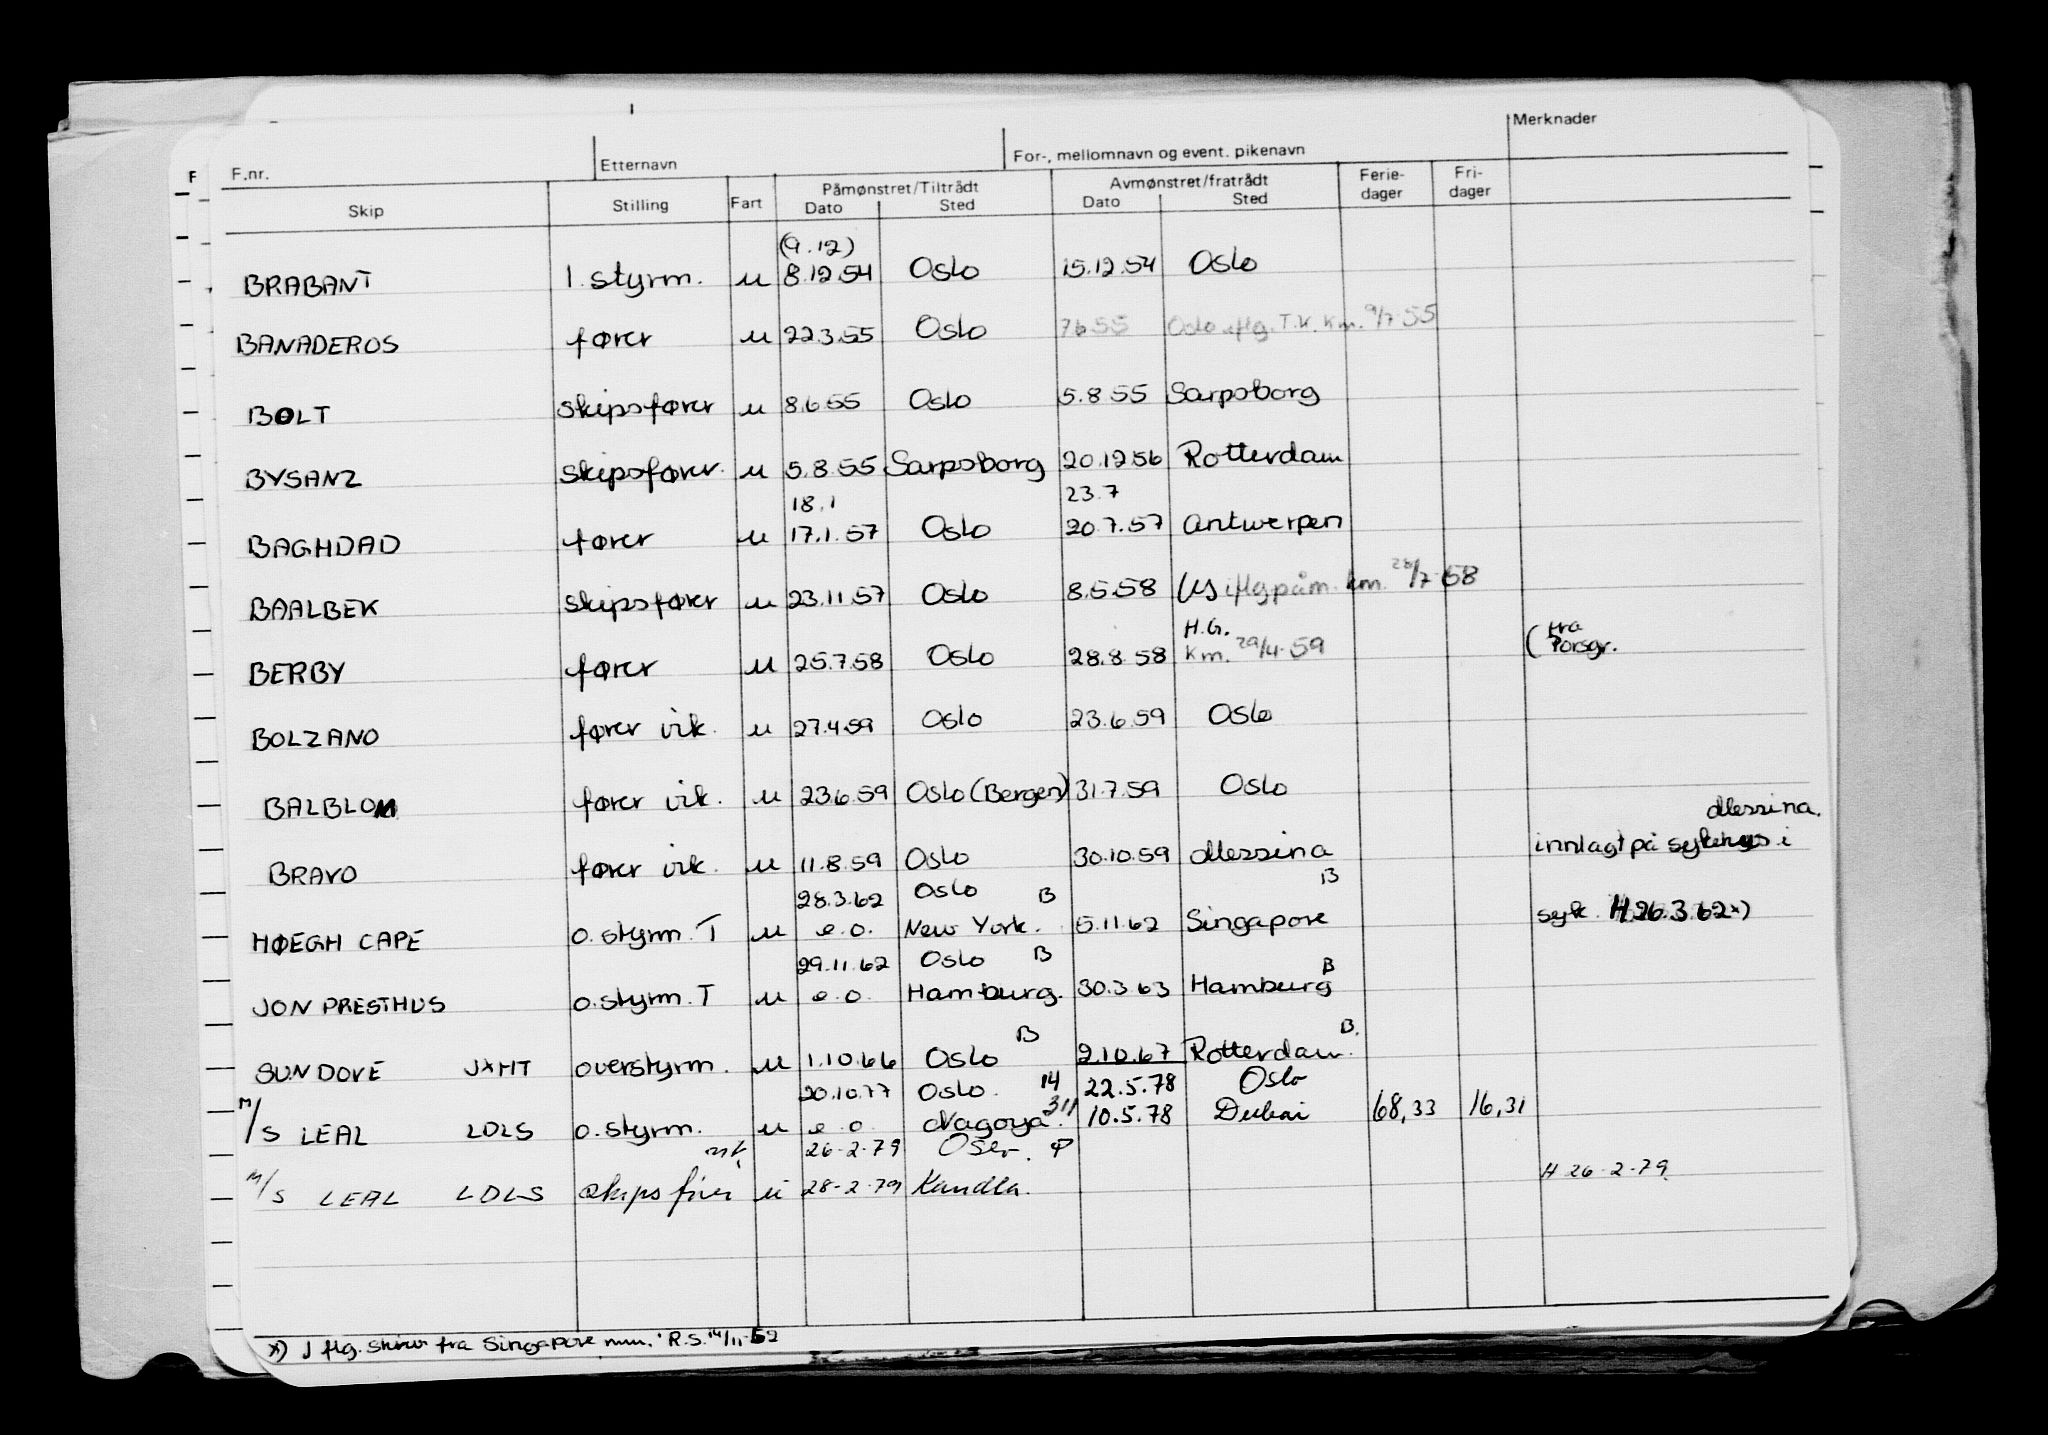 F
Merknader
F.nr. Etternavn For-, mellomnavn og event. pikenavn
Skip Stilling Fart Påmønstret/Tiltrådt Dato Sted Avmønstret/fratrådt Dato Sted Ferie-dager Fri-dager
(9.12)
BRABANT 1. styrm. u 8.12.54 Oslo 15.12.54 Oslo
BANADEROS fører u 22.3.55 Oslo 7.6.55 Oslo iflg. T.K. km. 9/7 55
BOLT skipsfører u 8.6.55 Oslo 5.8.55 Sarpsborg
BYSANZ skipsfører u 5.8.55 Sarpsborg 20.12.56 Rotterdam
18.1 23.7
BAGHDAD fører u 17.1.57 Oslo 20.7.57 Antwerpen
BAALBEK skipsfører u 23.11.57 Oslo 8.5.58 US iflg påm. km. 28/7-58
H.G. (fra
BERBY fører u 25.7.58 Oslo 28.8.58 km. 29/4-59 Porsgr.
BOLZANO fører vik. u 27.4.59 Oslo 23.6.59 Oslo
BALBLOM fører vik. u 23.6.59 Oslo (Bergen) 31.7.59 Oslo
Messina.
BRAVO fører vik. u 11.8.59 Oslo 30.10.59 Messina innlagt på sykehus i
28.3.62 Oslo B B
HØEGH CAPE o. styrm. T u e.o. New York. 5.11.62 Singapore syk. H 26.3.62 x)
29.11.62 Oslo B B
JON PRESTHUS o. styrm. T u e.o. Hamburg. 30.3.63 Hamburg
B B.
SUN DOVE JXMT overstyrm. u 1.10.66 Oslo 2.10.67 Rotterdam.
20.10.77 Oslo. 14 22.5.78 Oslo
M/S LEAL LDLS o. styrm. u e.o. Nagoya. 311 10.5.78 Dubai 68,33 16,31
26-2-79 Oslo.
M/S LEAL LDLS skipsfører u 28-2-79 Kandla. H 26-2-79
x) J flg. skriv fra Singapore mm. R.S. 14/11-62